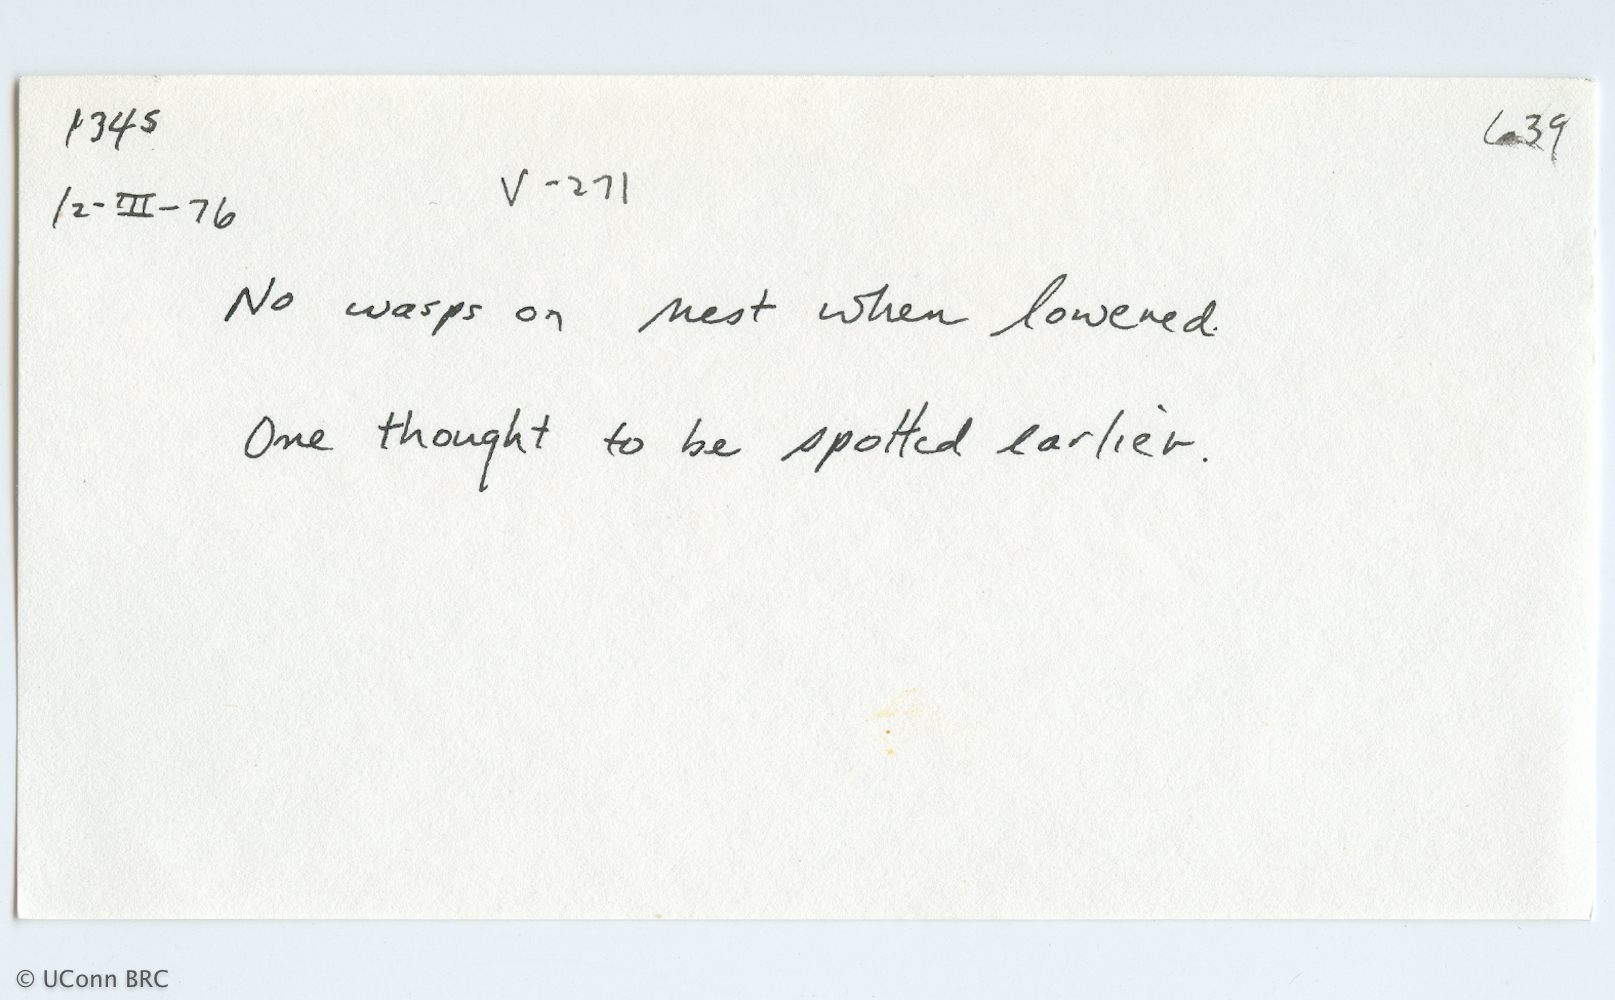 1345
639
12-III-76
V-271
No wasps on nest when lowered.
One thought to be spotted earlier.
© UConn BRC